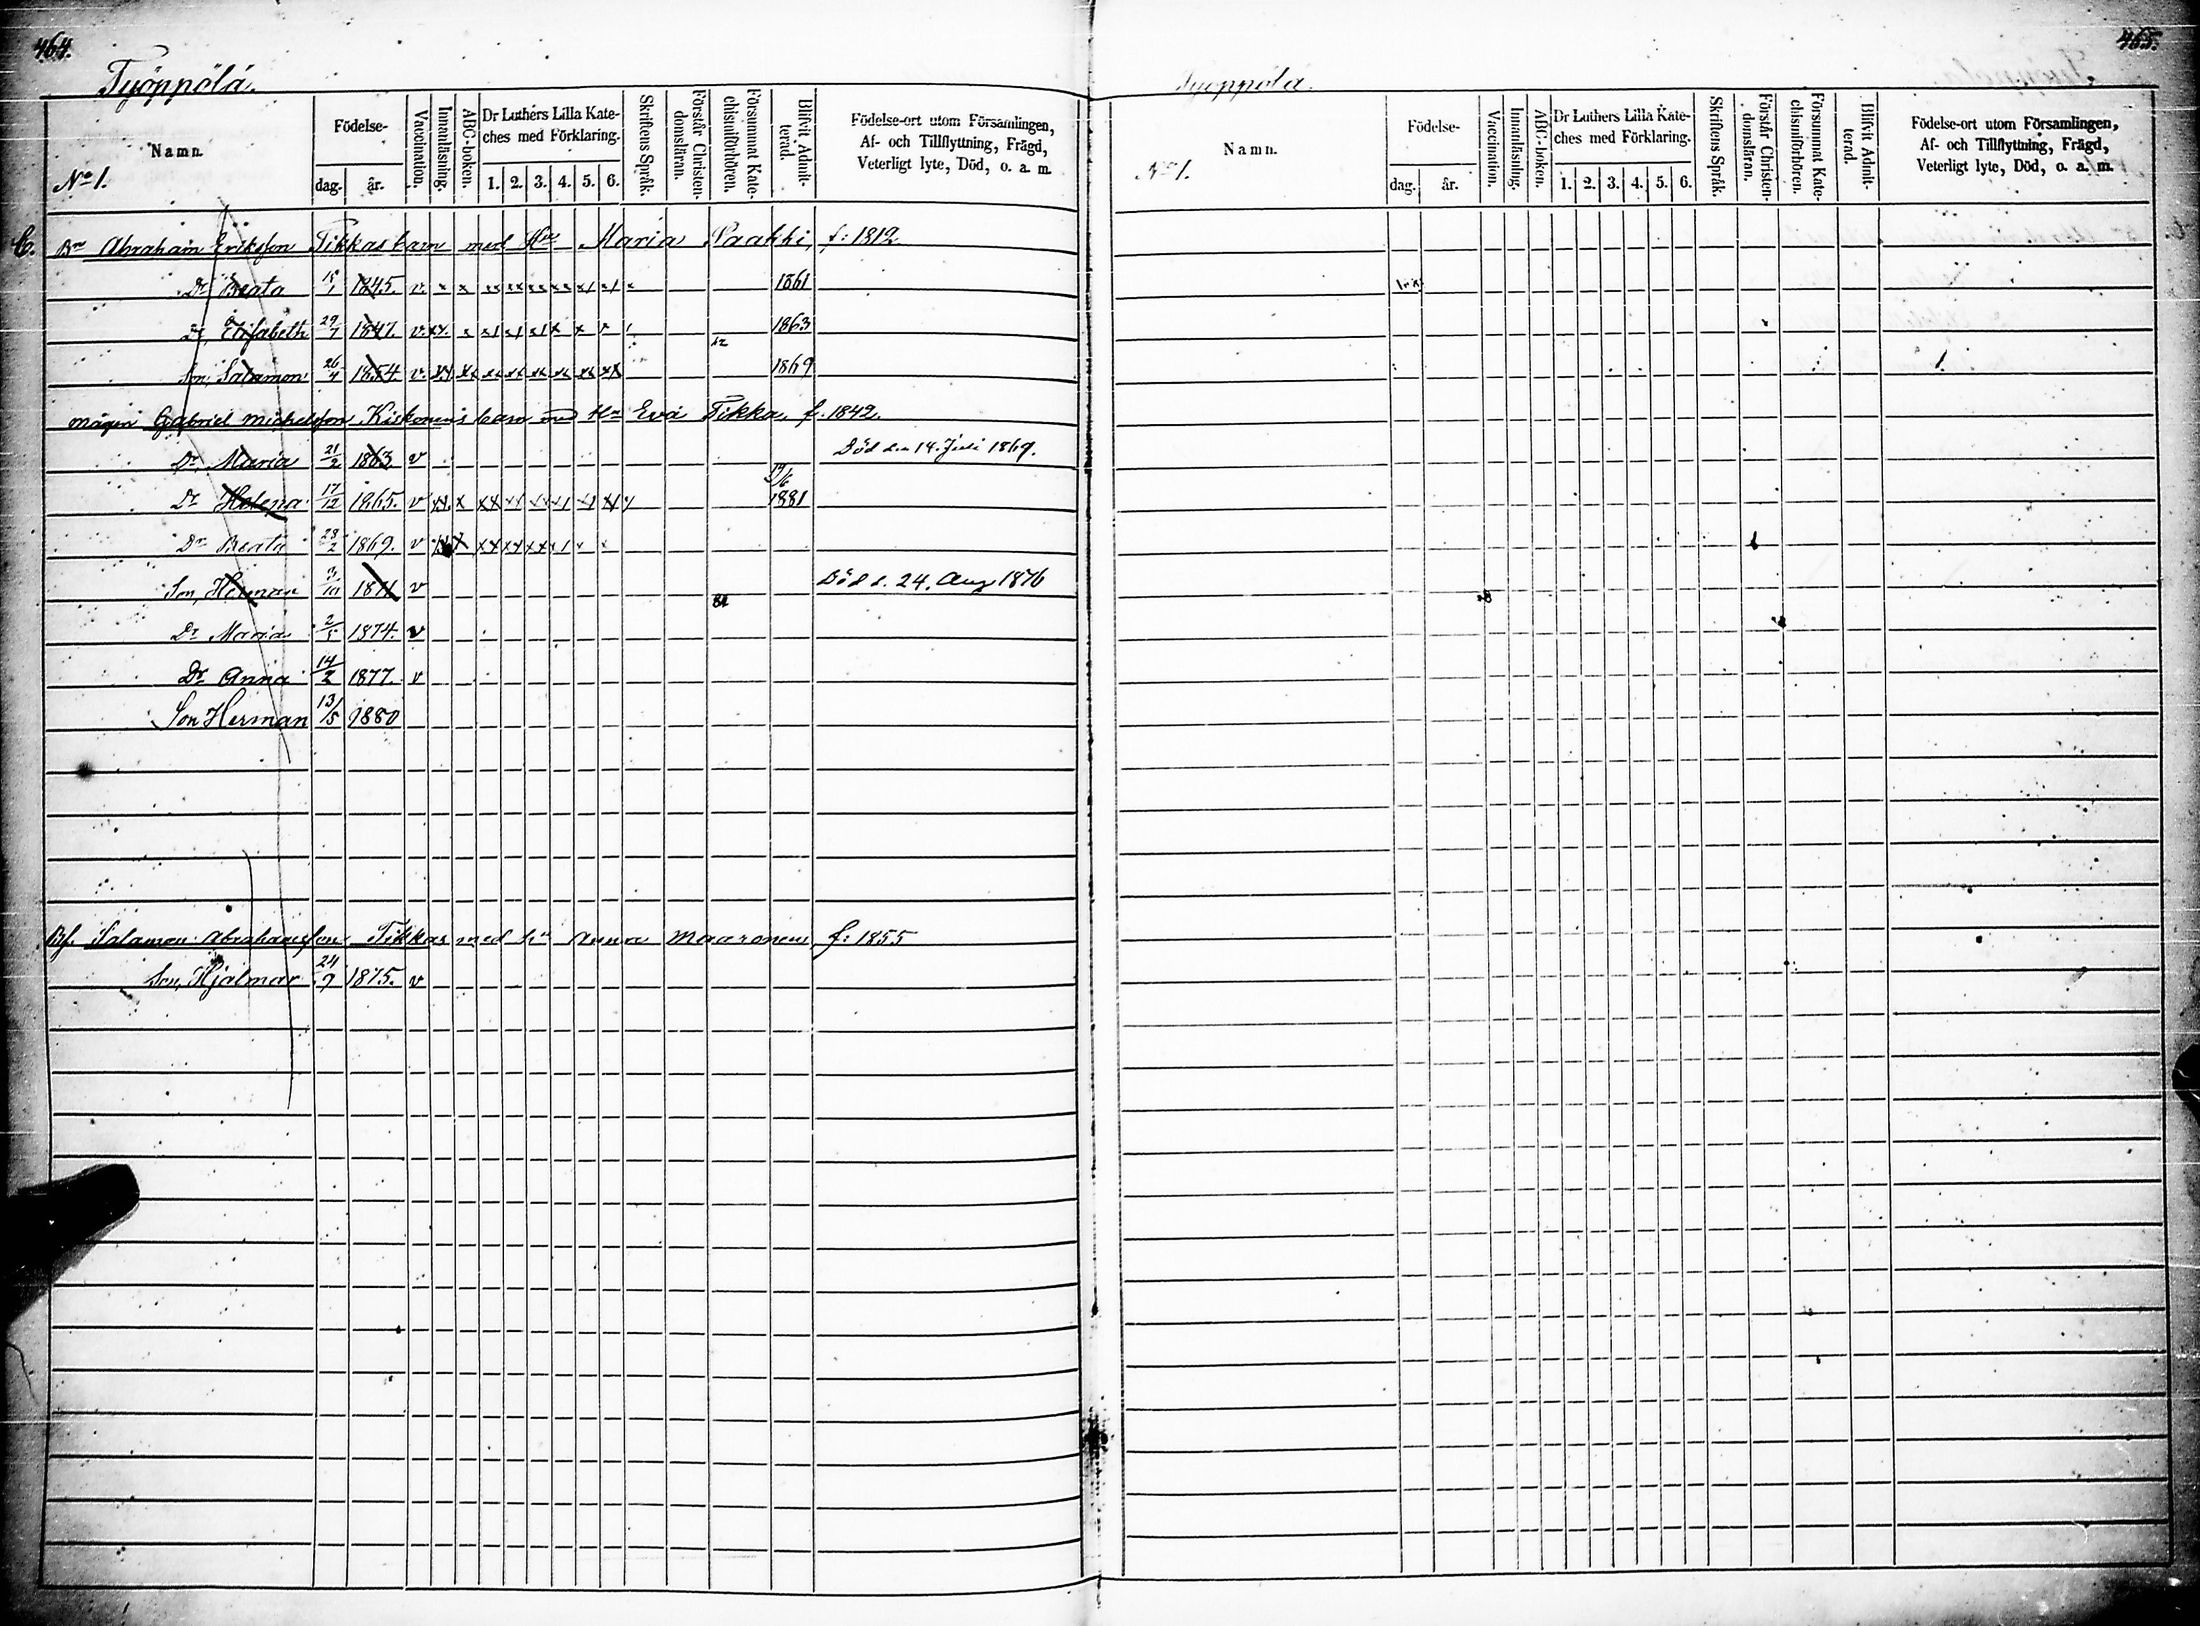 464.
Työppölä.
Namn.
No 1.
Födelse-
dag. år.
Vaccination.
Innanläsning.
ABC-boken.
Dr Luthers Lilla Kate-
ches med Förklaring.
1. 2. 3. 4. 5. 6.
Skriftens Språk.
Förstår Christen-
domsläran.
Försummat Kate-
chismiförhören.
Blifvit Admit-
terad.
Födelse-ort utom Församlingen,
Af- och Tillflyttning, Frägd,
Veterligt lyte, Död, o. a. m.
C. Bn Abraham Eriksson Tikkas barn med Hu Maria Paakki, f: 1812
Dr Beata 18/1 1845. v. x x xx xx xx xx x1 x1 x 1861
Dr, Elisabeth 29/7 1847. v. xx. x x1 x1 x1 x x x 1863
Son, Salamon 26/4 1854. v. xx xx xx xx xx xx xx xx 1869
mågen Gabriel Michelsson Kiskonens barn med Hu Eva Tikka, f. 1842.
Dr, Maria 21/2 1863. v Död den 14. Juli 1869.
Dr Helena 17/12 1865. v xx. x xx xx xx x1 x1 xx x 19/6 1881
Dr Beata 28/2 1869. v x xx xx xx x1 x x
Son, Herman 3/10 1871 v Död d. 24. Aug 1876
Dr Maria 2/5 1874. v
Dr Anna 14/2 1877. v
Son Herman 13/5 1880
Salamon Abrahamsson Tikkas med hu Anna Maaronen f: 1855
Son, Hjalmar 24/9 1875. v
465.
Työppölä.
Namn.
No 1.
Födelse-
dag. år.
Vaccination.
Innanläsning.
ABC-boken.
Dr Luthers Lilla Kate-
ches med Förklaring.
1. 2. 3. 4. 5. 6.
Skriftens Språk.
Förstår Christen-
domsläran.
Försummat Kate-
chismiförhören.
Blifvit Admit-
terad.
Födelse-ort utom Församlingen,
Af- och Tillflyttning, Frägd,
Veterligt lyte, Död, o. a. m.